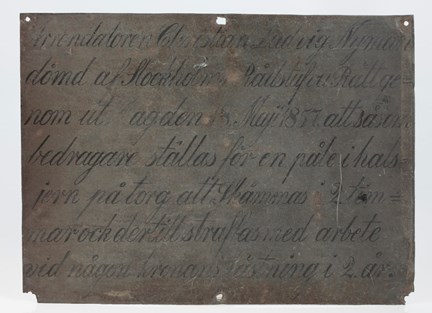 Arrendatoren Christian Ludvig Nyman
dömd af Stockholms Rådstufvu Rätt ge-
nom ut dag den 18 Maij 18 att såsom
bedragare ställas för en påle i hals=
jern på torg att skämmas i 2 tim=
mar och dertill straffas med arbete
vid någon kronans fästning i 2 år